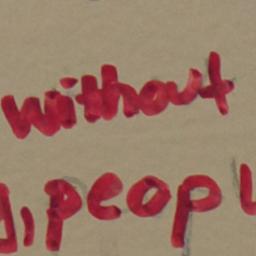 without
, peopl